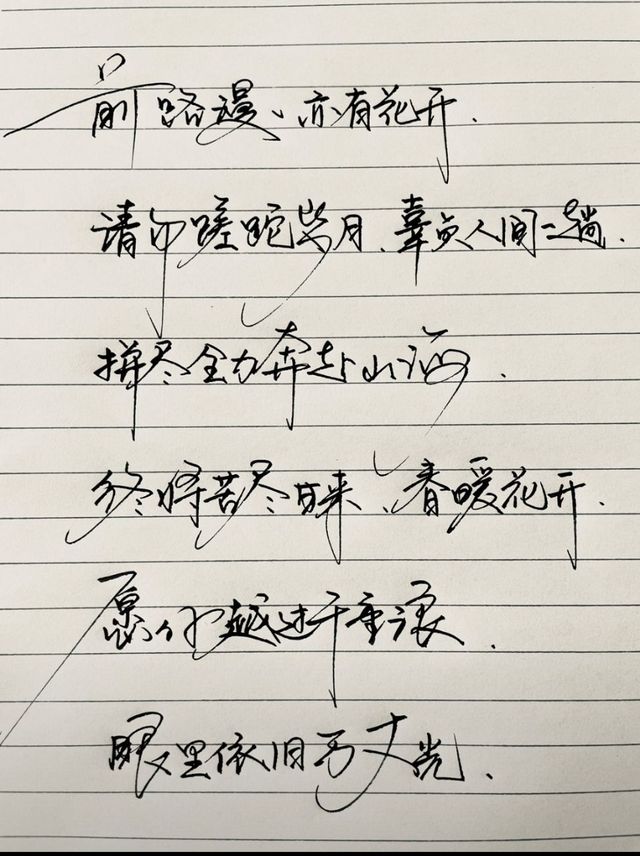 前路漫、亦有花开.
请勿蹉跎岁月.辜负人间一趟.
拼尽全力奔赴山海.
终将苦尽甘来、春暖花开.
愿你越过千重浪.
眼里依旧万丈光.